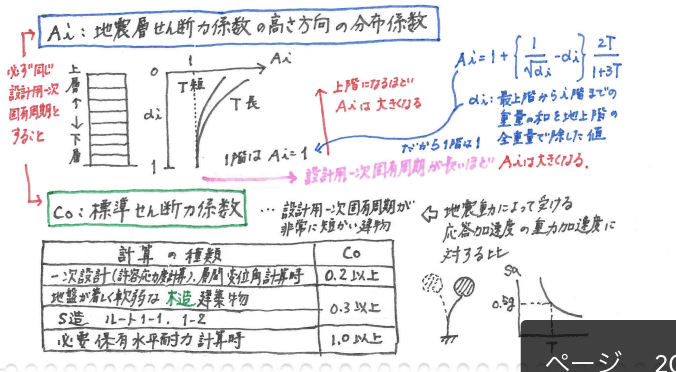 Ai:地震層せん断力係数の高さ方向の分布係数
必ず"同じ
設計用一次
固有周期と
すること
上層
↑
↓
下層
1
Ai
0
αi
1
T短
T長
1階は Ai=1
上階になるほど
Aiは大きくなる
Ai=1+{1/√αi-αi}2T/1+3T
αi:最上階からi階までの
重量の和を地上階の
全重量で除した値
だから1階は1
設計用一次固有周期が長いほど Aiは大きくなる.
Co:標準せん断力係数
…設計用一次固有周期が
非常に短かい建物
⇦地震動によって受ける
応答加速度の重力加速度に
対する比
計算の種類 Co
一次設計(許容応力度計算)、層間変位角計算時 0.2以上
地盤が著しく軟弱な木造建築物 0.3以上
S造 ルート1-1, 1-2
必要保有水平耐力計算時 1.0以上
Sa
0.5g
T
ページ 20